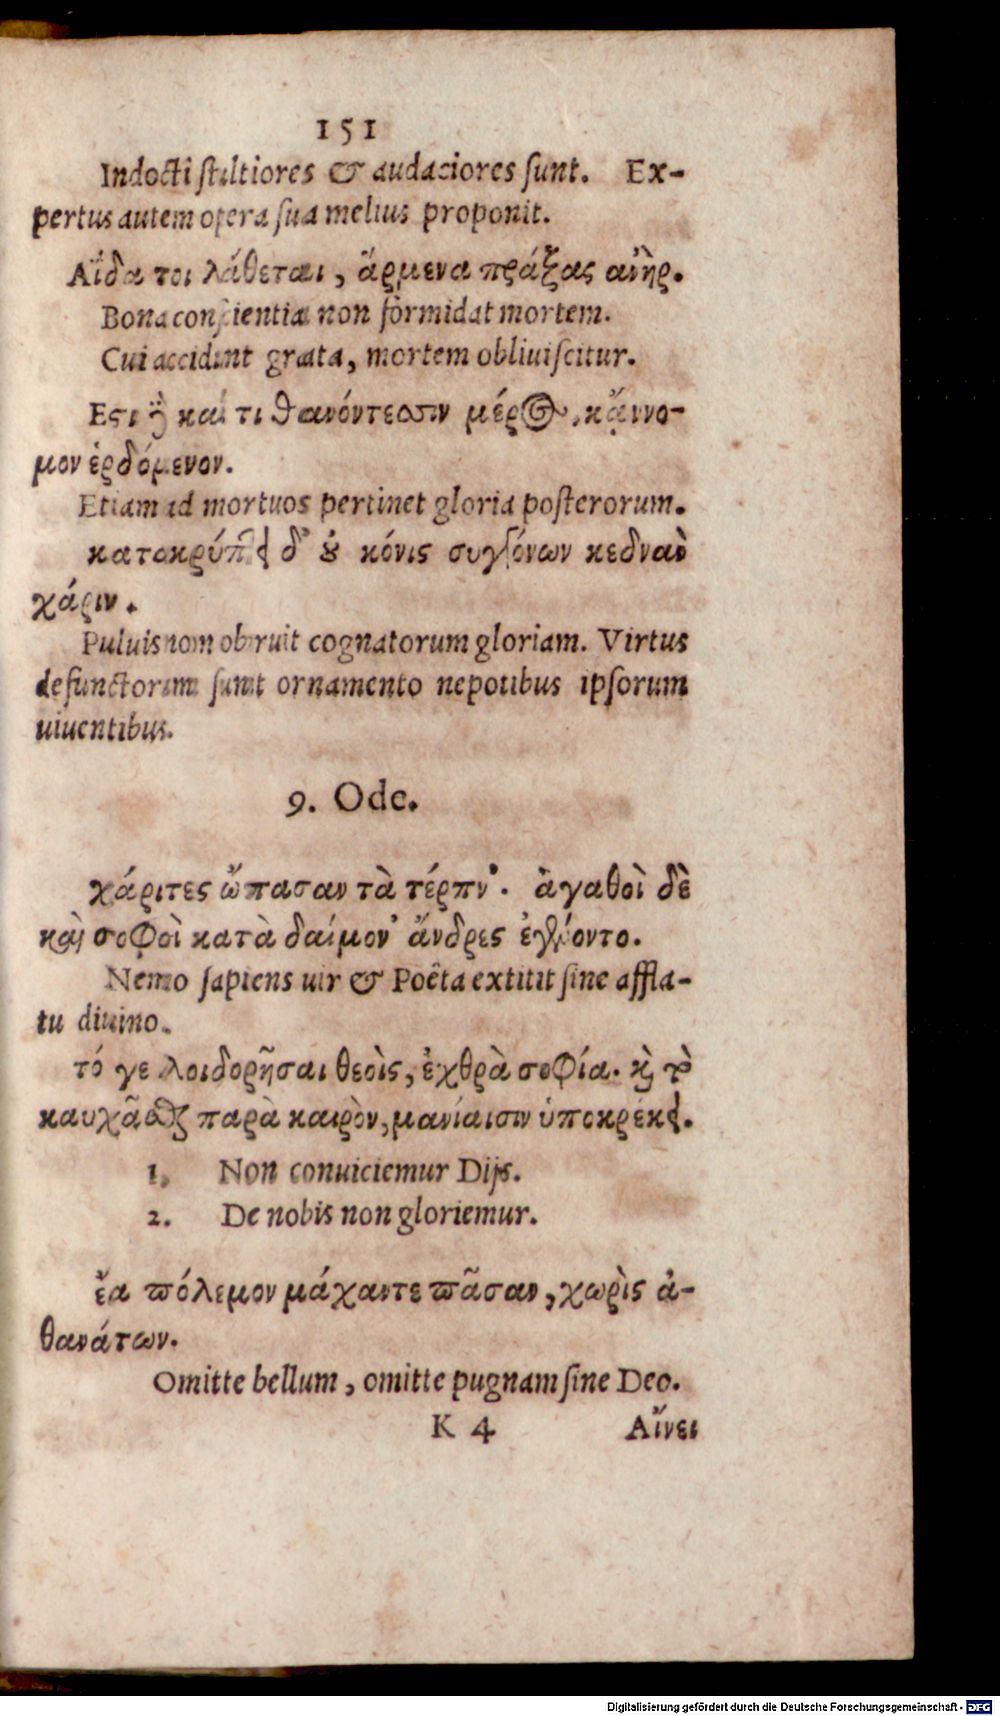 151
Indocti stultiores & audaciores sunt. Ex-
pertus autem opera sua melius proponit.
Αἴδα τοι λάθεται, ἄρμενα πράξας ἀνήρ.
Bona conscientia non formidat mortem.
Cui accidunt grata, mortem obliuiscitur.
Εϛι ἢ καί τι θανόντεσσιν μέρος, κἄννο-
μον ἐρδόμενον.
Etiam ad mortuos pertinet gloria posterorum.
κατακρύπτει δ' ȣ κόνις συγγόνων κεδνὰν
χάριν.
Puluis non obruit cognatorum gloriam. Virtus
defunctorum sunt ornamento nepotibus ipsorum
uiuentibus.
9. Ode.
χάριτες ὤπασαν τὰ τέρπν'. ἀγαθοὶ δὲ
καὶ σοφοὶ κατὰ δαίμον' ἄνδρες ἐγένοντο.
Nemo sapiens uir & Poêta extitit sine affla-
tu diuino.
τό γε λοιδορῆσαι θεοὶς, ἐχθρὰ σοφία. καὶ τὸ
καυχᾶσθαι παρὰ καιρὸν, μανίαισιν ὑποκρέκει.
1. Non conuiciemur Dijs.
2. De nobis non gloriemur.
ἔα πόλεμον μάχαντε πᾶσαν, χωρὶς ἀ-
θανάτων.
Omitte bellum, omitte pugnam sine Deo.
K 4 Αἴνει
Digitalisierung gefördert durch die Deutsche Forschungsgemeinschaft - DFG